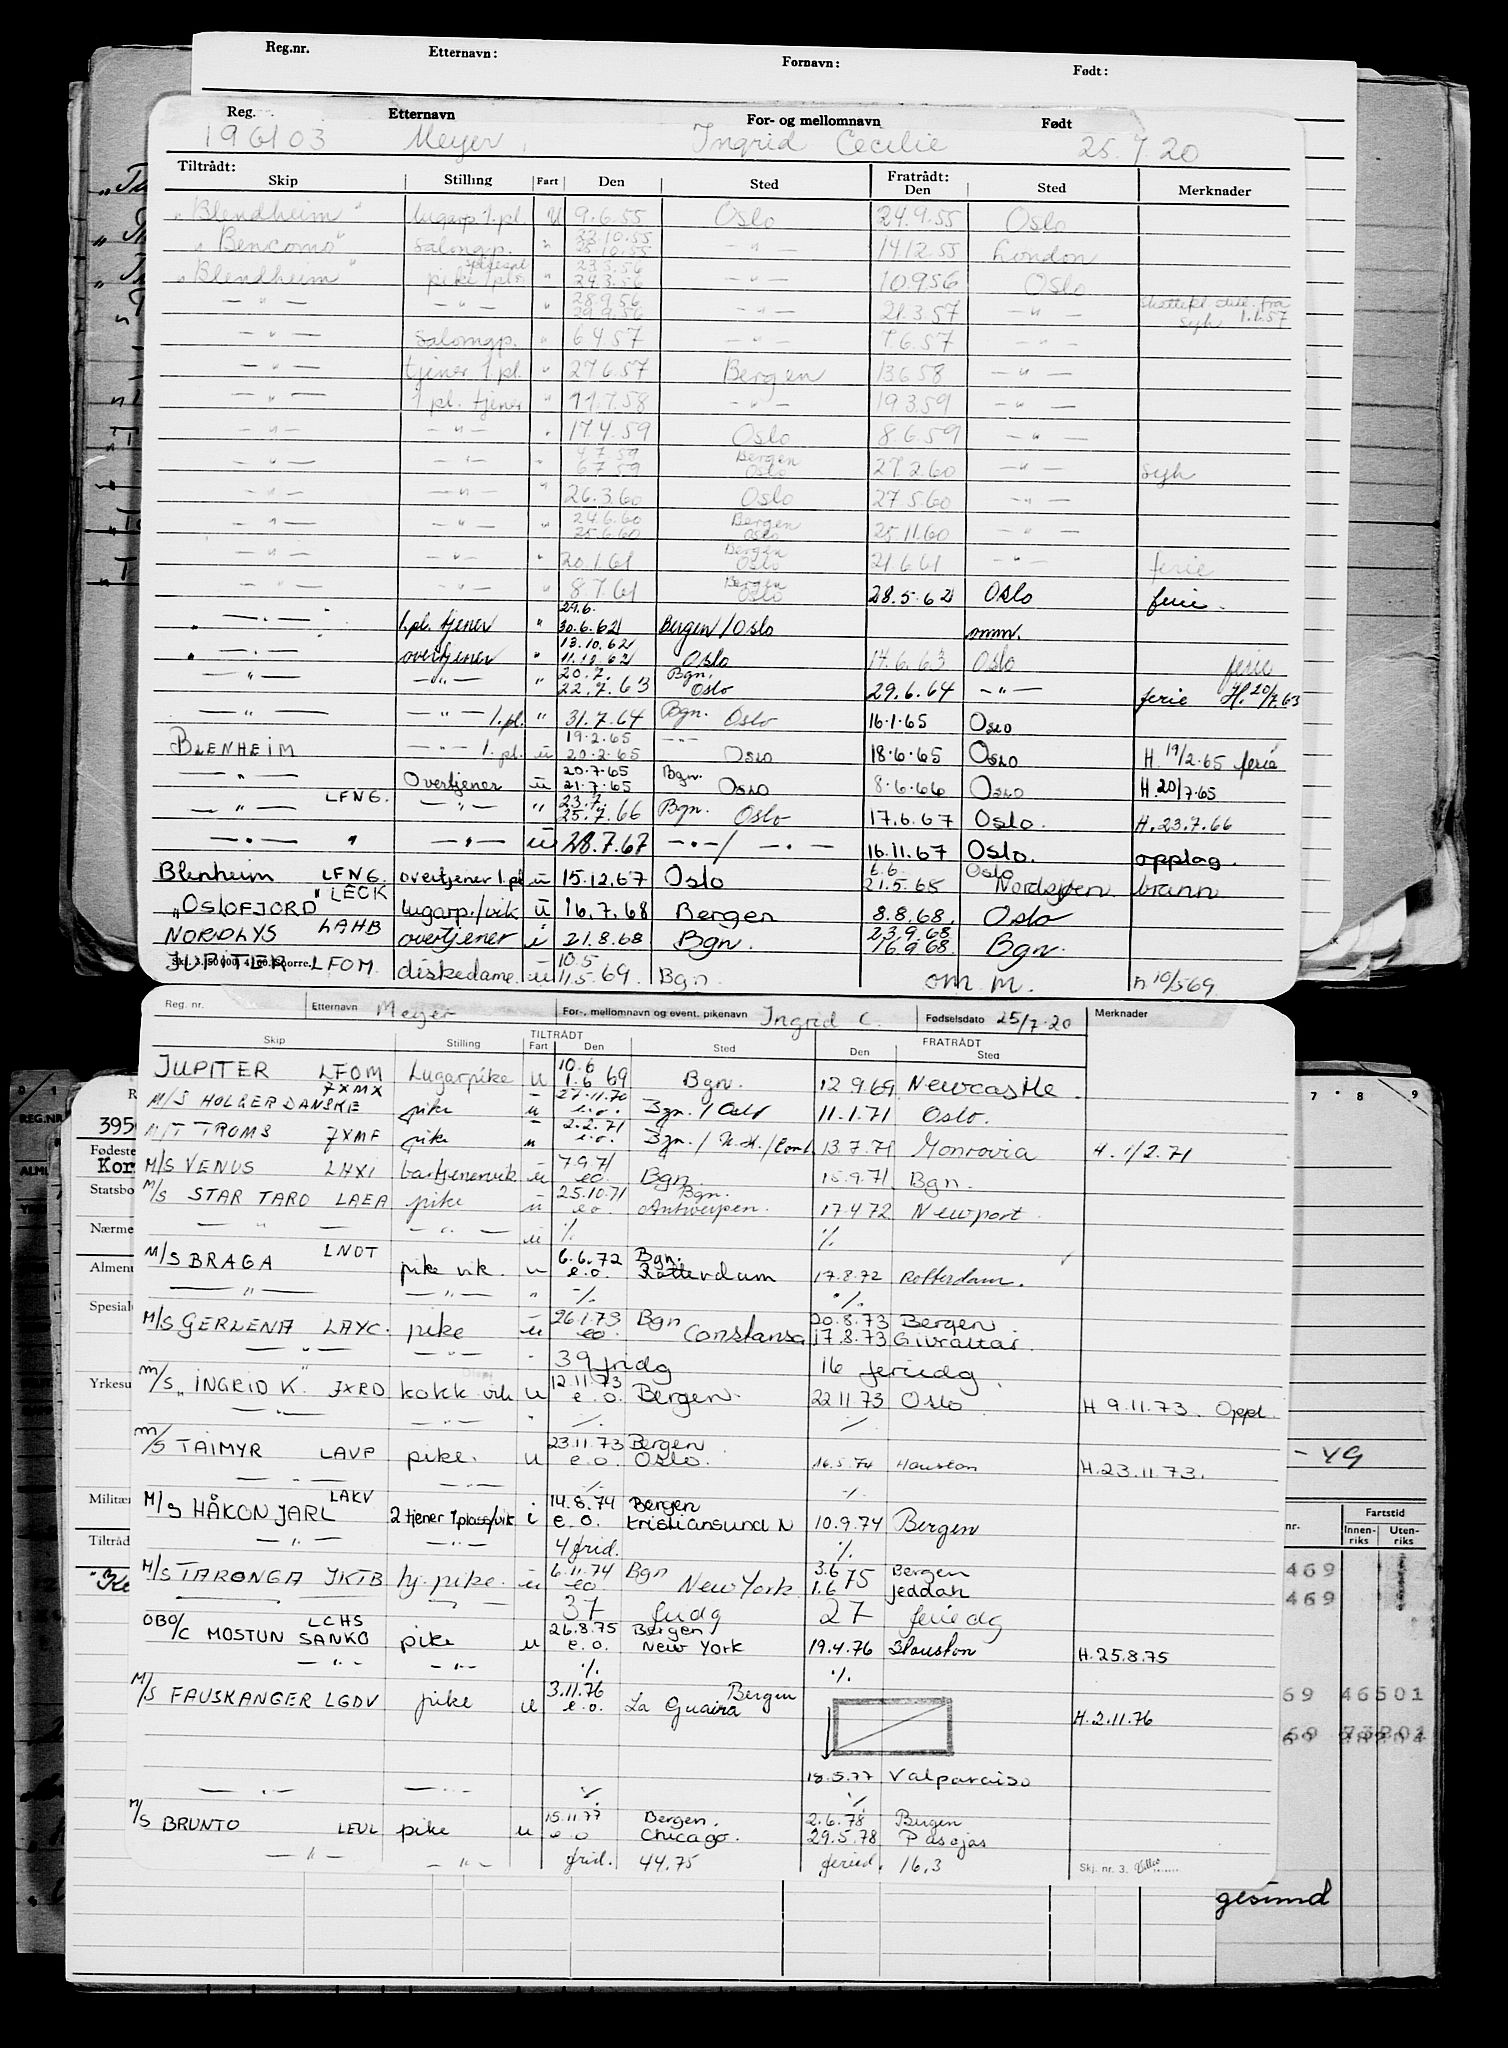 Reg.nr. Etternavn: Fornavn: Født:
Reg. Etternavn For- og mellomnavn Født
196103 Meyer, Ingrid Cecilie 25.7.20
Tiltrådt: Fratrådt:
Skip Stilling Fart Den Sted Den Sted Merknader
"Blendheim" lugarp 1.pl. u 9.6.55 Oslo 24.9.55 Oslo
22.10.55
"Bencomo" salongp. " 25.10.55 — " — 14.12.55 London
23.3.56
"Blendheim" pike 1pl. " 24.3.56 — " — 10.9.56 Oslo
28.9.56
— " — — " — " 29.9.56 — " — 21.3.57 — " — skattekl. fra
syk 1.1.57
— " — salongp. " 6.4.57 — " — 7.6.57 — " —
— " — tjener 1.pl. " 27.6.57 Bergen 13.6.58 — " —
— " — 1 pl. tjener " 11.7.58 — " — 19.3.59 — " —
— " — — " — " 17.4.59 Oslo 8.6.59 — " —
4.7.59 Bergen
— " — — " — " 6.7.59 Oslo 27.2.60 — " — syk
— " — — " — " 26.3.60 Oslo 27.5.60 — " —
24.6.60 Bergen
— " — — " — " 25.6.60 Oslo 25.11.60 — " —
Bergen
— " — — " — " 20.1.61 Oslo 21.6.61 — " — ferie
Bergen
— " — — " — " 8.7.61 Oslo 28.5.62 Oslo ferie.
29.6.
" — " — 1.pl. tjener " 30.6.62 Bergen/Oslo omm.
13.10.62
" — " — overtjener " 11.10.62 Oslo 14.6.63 Oslo ferie
20.7. Bgn.
— " — — " — " 22.7.63 Oslo 29.6.64 — " — ferie H. 20/7.63
— " — — " — 1.pl. " 31.7.64 Bgn. Oslo 16.1.65 Oslo
19.2.65 — " —
BLENHEIM — " — 1.pl. u 20.2.65 Oslo 18.6.65 Oslo H. 19/2.65 ferie
20.7.65 Bgn.
— " — Overtjener u 21.7.65 Oslo 8.6.66 Oslo H.20/7.65
— " — LFNG. — " — " 23.7. Bgn.
25.7.66 Oslo 17.6.67 Oslo. H.23.7.66
— " — " — " — u 28.7.67 — " — / — " — 16.11.67 Oslo. opplag.
6.6 Oslo
Blenheim LFNG. overtjener 1.pl u 15.12.67 Oslo 21.5.68 Nordsjøen brann
"OSLOFJORD" LECK lugarp./vik u 16.7.68 Bergen 8.8.68. Oslo
23.9.68
NORDLYS LAHB overtjener i 21.8.68 Bgn. 16.9.68 Bgn.
10.5
JUPITER LFOM diskedame. u 11.5.69. Bgn. om m. h 10/5 69
Reg. nr. Etternavn Meyer For-, mellomnavn og event. pikenavn Ingrid C. Fødselsdato 25/7.20 Merknader
TILTRÅDT FRATRÅDT
Skip Stilling Fart Den Sted Den Sted
10.6
JUPITER LFOM Lugarpike u 1.6 69 Bgn. 12.9.69 Newcastle.
JXMX 27.11.70
M/S HOLGER DANSKE pike u e.o. Bgn./Oslo 11.1.71 Oslo.
2.2.71
M/T TROMS JXMF pike u e.o. Bgn./ 13.7.71 Monrovia H. 1/2.71
7.9.71
M/S VENUS LHXI bartjenervik u eo Bgn. 15.9.71 Bgn.
25.10.71 Bgn.
M/S STAR TARO LAEA pike u e.o. Antwerpen. 17.4.72 Newport.
— " — — " — u ./. ./.
6.6.72 Bgn.
M/S BRAGA LNOT pike vik. u e.o. Rotterdam 17.8.72 Rotterdam.
— " — — " — " ./. ./.
26.1.73 Bgn 20.8.73 Bergen
M/S GERLENA LAYC. pike u eo. Constansa 17.8.73 Givraltar.
— " — — " — " 39 fridg 16 feriedg.
12.11.73
M/S "INGRID K." JXRD kokk vik u e.o. Bergen. 22.11.73 Oslo H 9.11.73. Oppl.
— " — — " — " ./. ./.
23.11.73 Bergen
M/S TAIMYR LAVP pike. u e.o. Oslo. 16.5.74 Houston H.23.11.73.
— " — — " — ./. ./.
LAKV 14.8.74 Bergen
M/S HÅKON JARL 2 tjener 1plass/vik i e.o. Kristiansund N 10.9.74 Bergen
— " — — " — 4 frid. ./.
6.11.74 Bgn 3.6 Bergen
M/S TARONGA JKTB hj. pike. u eo New York 1.6 75 Jeddah
— " — — " — 37 fridg 27 feriedg
LCHS 26.8.75 Bergen
OBO/C MOSTUN SANKO pike u e.o. New York 19.4.76 Houston H.25.8.75
— " — — " — ./. ./.
3.11.76 Bergen
M/S FAUSKANGER LGDV pike u e.o. La Guaira H.2.11.76
18.5.77 Valparaiso
— " — — " — ./. ./.
15.11.77 Bergen. 2.6.78 Bergen
M/S BRUNTO LEUL pike u e o Chicago. 29.5.78 Pascjas
— " — — " — frid. 44.75 feried. 16.3 Skj. nr. 3.
REG.NR
Fødeste
Kor
Statsbo
Nærme
Almen
Spesial
Yrkesu
Militær
Tiltråd
- 49
nr. Fartstid
Innenriks Utenriks
469
469
69 46501
gesund